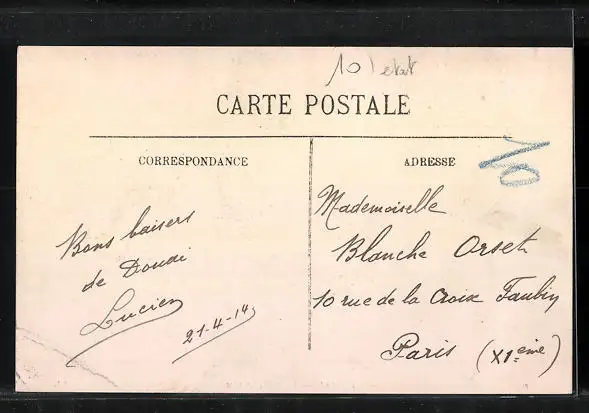 10 etat
CARTE POSTALE
CORRESPONDANCE
ADRESSE
10
Bons baisers
de Douai
Lucien
21-4-14
Mademoiselle
Blanche Orset
10 rue de la Croix Faubin
Paris (XI=eme)